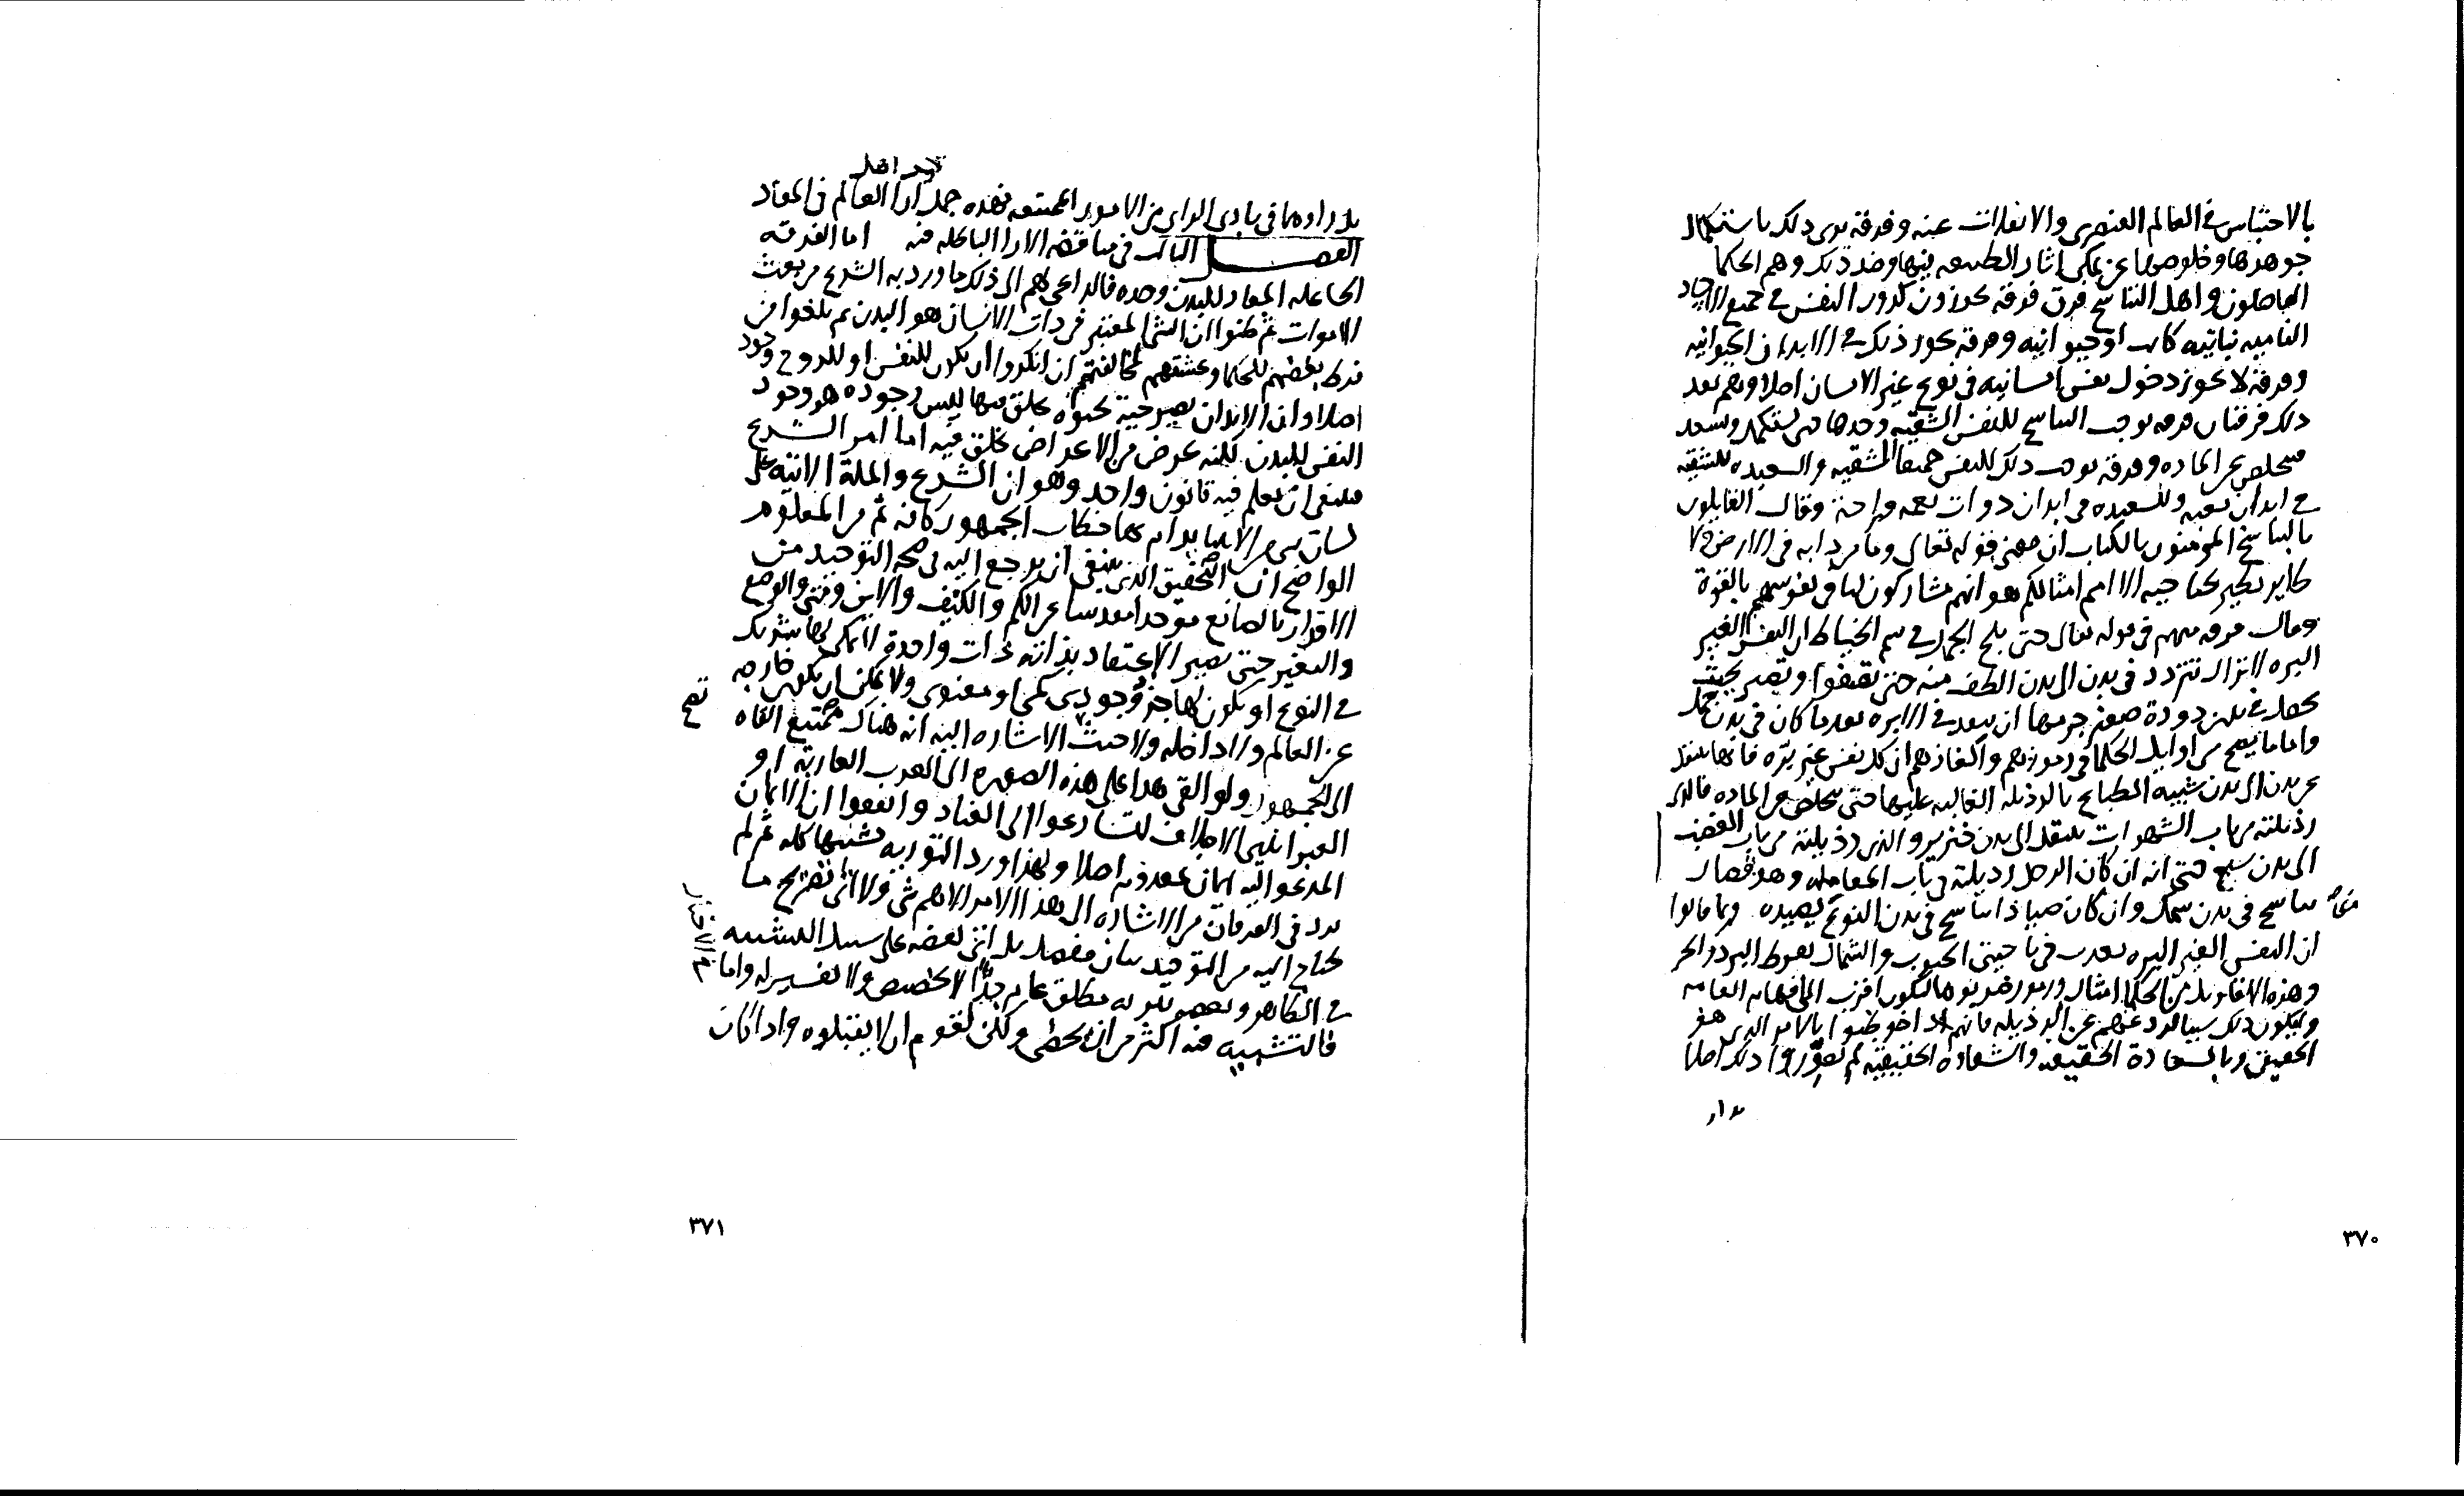 بالاحتباس في العالم العنصري والانفلات عنه وفرقة يرى ذلك باستكمال
جوهرها وخلوصها عن تمكن اثار الطبيعه فيها وضد ذلك وهم الحكما
الفاضلون واهل التناسخ فرق فرقه يجوزون كرور النفس في جميع الاجساد
الناميه نباتيه كانت او حيوانيه وفرقه يجوز ذلك في الابدان الحيوانيه
وفرقة لا يجوز دخول نفس انسانيه في نوع غير الانسان اصلا وهم بعد
ذلك فرقتان فرقه توجب التناسخ للنفس الشقيه وحدها حتى تستكمل وتسعد
فتتخلص عن الماده وفرقه توجب ذلك للنفس جميعا الشقيه والسعيده للشقيه
في ابدان تعبه وللسعيده في ابدان ذوات نعمه وراحة وقال القايلون
بالتناسخ المومنون بالكتاب ان معنى قوله تعالى وما من دابه في الارض ولا
طاير يطير بجناحيه الا امم امثالكم هو انهم مشاركون لنا في نفوسهم بالقوة
وقالت فرقه منهم في قوله تعالى حتى يلج الجمل في سم الخياط ان النفس الغير
البره لا تزال تتردد في بدن الى بدن الطف منه حتى وتصير بحيث
تحصل في بدن دودة صغر جرمها ان ينفد في الابره بعد ما كان في بدن جمل
واما ما يصح من اوايل الحكما في رموزهم والغازهم ان كل نفس غير بره فانها تنتقل
عن بدن الى بدن شبيه الطبايع بالرذيله الغالبه عليها حتى تتخلص عن الماده فالذى
رذيلته من باب الشهوات تنتقل الى بدن خنزير والذى رذيلته من باب الغضب
الى بدن سبع حتى انه ان كان الرجل رذيلته في باب المعامله وهو قصار
تناسخ في بدن سمك وان كان صيادا تناسخ في بدن النوع يصيده وربما قالوا
ان النفس الغير البره تعذب في ناحيتى الجنوب والشمال بفرط البرد والحر
وهذه الاقاويل من الحكما امثال ورموز ضربوها لتكون اقرب الى افهام العامه
وليكون ذلك سببا لردعهم عن الرذيله فانهم اذا خوطبوا بالامر الذى هو
الحقيقى وبالسعادة الحقيقيه والشقاوه الحقيقيه لم يتصوروا ذلك اصلا
بل را
٣٧٠
عند اهل
بل راوهما في بادى الراى من الامور الممتنعه فهذه جمل ارا العالم في المعاد
الفصل الثالث في مناقضه الارا الباطله منه اما الفرقه
الجاعله المعاد للبدن وحده فالداعى لهم الى ذلك ما ورد به الشرع من بعث
الاموات ثم ظنوا ان الشى المعتبر في ذات الانسان هو البدن ثم بلغوا من
فرط بغضهم للحكما وعشقهم لمخالفتهم ان انكروا ان يكون للنفس او للروح وجود
اصلا وان الابدان تصير حية بحيوه تخلق فيها ليس وجوده هو وجود
النفس للبدن لكنه عرض من الاعراض تخلق فيه اما امر الشرع
فينبغى ان يعلم فيه قانون واحد وهو ان الشرع والملة الاتيه على
لسان نبى من الانبيا يرام بها خطاب الجمهور كافه ثم من المعلوم
الواضح ان التحقيق الذى ينبغى ان يرجع اليه في صحه التوحيد من
الاقرار بالصانع موحدا مقدسا عن الكم والكيف والاين ومتى والوضع
والتغير حتى يصير الاعتقاد به انه ذات واحدة لا يمكن لها شريك
في النوع او يكون لها جزو وجودى كمى او معنوى ولا يمكن ان تكون خارجه
عن العالم ولا داخله ولا حيث الاشاره اليه انه هناك ممتنع القاه
الى الجمهور ولو القى هذا على هذه الصوره الى العرب العاربة او
العبرانيين الاجلاف لتسارعوا الى العناد واتفقوا ان الايمان
المدعو اليه ايمان بمعدوم اصلا ولهذا ورد التوريه تشبيها كله ثم لم
يرد في الفرقان من الاشاره الى هذا الامر الاهم شى ولا اتى بصريح ما
يحتاج اليه من التوحيد بيان مفصل بل اتى بعضه على سبيل التشبيه
في الظاهر وبعضه تنزيه مطلق عام جدا لا تخصيص ولا تفسير له واما
فالتشبيه فيه اكثر من ان يحصى ولكن لقوم ان لا يقبلوه واذا كان
٣٧١